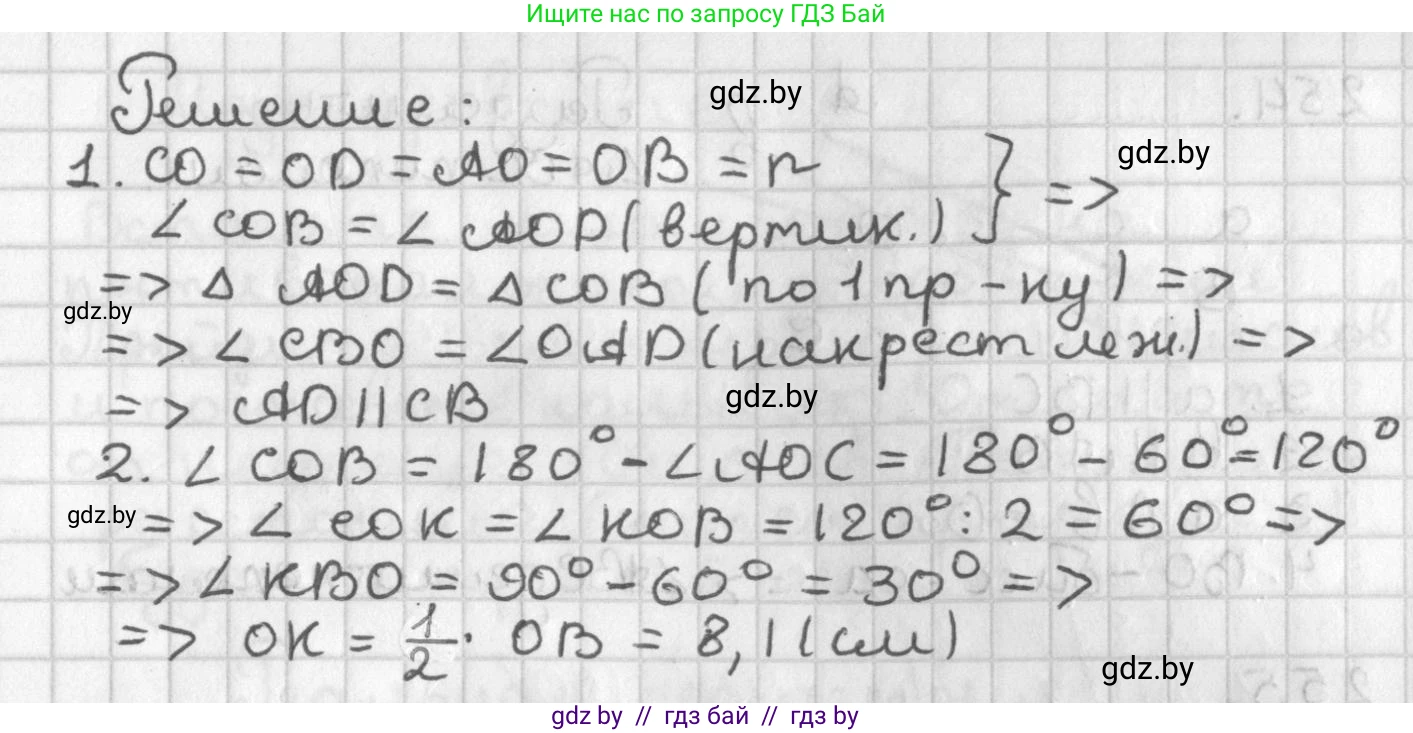 Ищите нас по запросу ГДЗ Бай
Решение:
gdz.by
1. CO = OD = AO = OB = r
gdz.by
∠ COB = ∠ AOD (вертик.) } =>
=> △ AOD = △ COB (по 1 пр-ку) =>
gdz.by
=> ∠ CBO = ∠OAD (накрест леж.) =>
=> AD || CB
gdz.by
2. ∠ COB = 180° - ∠AOC = 180° - 60° = 120°
gdz.by
=> ∠ COK = ∠ KOB = 120° : 2 = 60° =>
=> ∠ KBO = 90° - 60° = 30° =>
=> OK = 1/2 · OB = 8,1 (см)
gdz.by
gdz by // гдз бай // gdz by